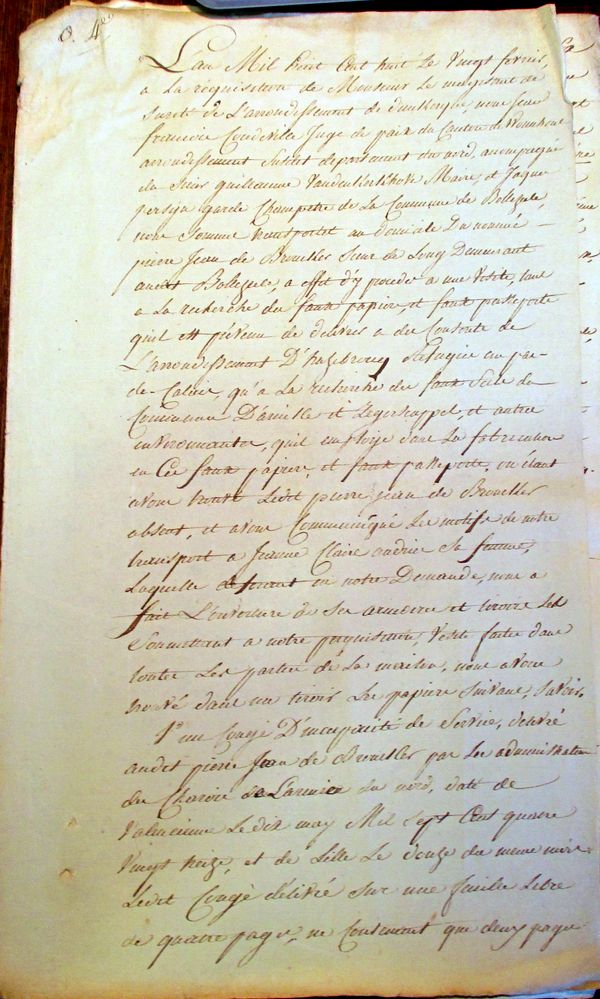 O. 4
L'an Mil huit Cent huit le Vingt fevrier,
a La requisition de Monsieur Le magistrat de
sureté de L'arrondissement de dunkerque, nous
francois Coudeville Juge de paix du Canton de Wormhout
arrondissement Susdit departement du nord, accompagné
du Sieur guillieaume Maire, et Jaque
persyn garde Champetre de La Commune de Bollezele,
nous Somme transportés au domicile Du nommé
pierre Jean de Bruckler Demeurant
audit Bollezele, a effet d'y proceder a une Visite, tant
a La recherche des faux papiers, et faux passeports
quil est prévenu de delivrer a des Conscrits de
L'arrondissement D'hazebrouck au pas-
de-Calais, qu'a La recherche des faux du
Communes D' et Zegerscappel, et autre
quil employe dans La fabrication
en Ces faux papiers, et faux passeports, ou étant
avons trouvé Ledit pierre jean de Bruckler
absent, et avons Communiqué Les motifs de notre
transport a Jeanne Claire Sa femme,
Laquelle en notre Demande, nous a
fait L'ouverture de Ses armoires et tiroirs Les
Soumettant a notre perquisition, Visite faite dans
toutes Les parties de La maison, nous avons
trouvé dans un tiroir Les papiers Suivans, Savoir.
1° un Congé D'incapacité de Service, delivré
audit pierre Jean de Bruckler par Les administrateurs
du Charois de L'armée du nord, daté de
Valencienne Le dix may Mil Sept Cent quatre
Vingt treize, et de Lille Le douze du meme mois
Ledit Congé délivré Sur une feuille Libre
de quattre pages, ne Contenant que deux pages